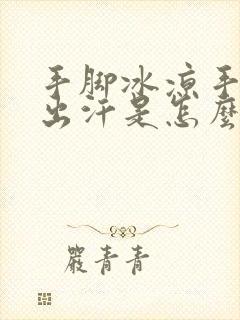 手脚冰凉手
出汗是怎麽
嚴青青